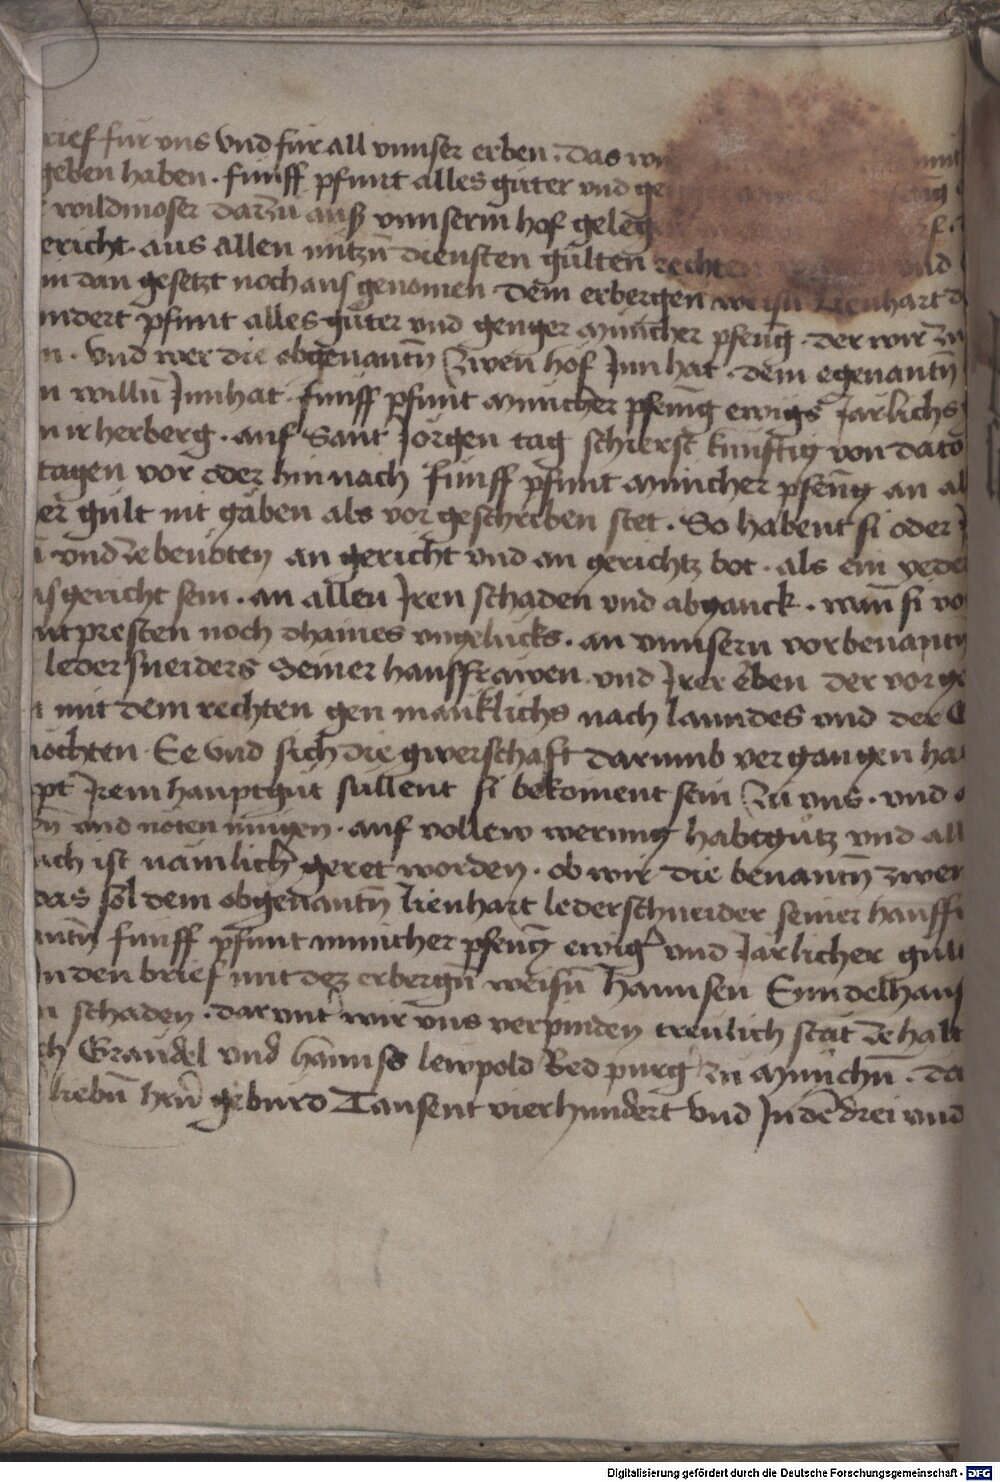 rief für uns und für all unnser erben · das wir
geben haben · fünff pfunt alles guter und
wildmoser darzu auß unnserm hof gelegen
ericht · aus allen nützn diensten gülten rechten und
m dan gesetzt noch aus genomen dem erbergen weisn Lienhart
undert pfunt alles guter und genger Müncher pfeng · der wir zu
n · und wer die obgenantn zwen hof Innhat · dem egenantn
n willn Innhat · fünff pfunt Müncher pfening ewigs Järlichs
n ir herberg · auf Sant Jörgen tag schierst künftig von dato
tagen vor oder hinnach fünff pfunt Müncher pfeng an
er gült nit gäben als vor geschriben stet · So habent si oder
und ze benöten an gericht und an gerichtz bot · als ein yede
gericht sein · an allen Iren schaden und abganck · wann si vo
presten noch dhaines ungelücks · an unnsern vorbenantn
ledersneiders seiner hausfrawen und Irer eben der vor ge
mit dem rechten gen mäniklichs nach lanndes und der
möchten · Ee und sich die gwerschaft darumb vergangen ha
pt Irem hauptgut süllent si bekoment sein zu uns · und
und noten mugen · auf vollew werung habtgutz und all
uch ist nämlich geret worden · ob wir die benantn zwen
das sol dem obgenantn Lienhart lederschneider seiner hausf
antn fünff pfunt müncher pfeng ewiger und Järlicher gül
In den brief mit dez erbergn weisn Hannsen Eyndelhaus
n schaden · dar unt wir uns verpinden treulich stät ze halt
ch Grändel und Hannss lewpold Bed purger zu Münchn · da
liebn hrn geburd Tausent vierhundert und In de drei und
Digitalisierung gefördert durch die Deutsche Forschungsgemeinschaft - DFG